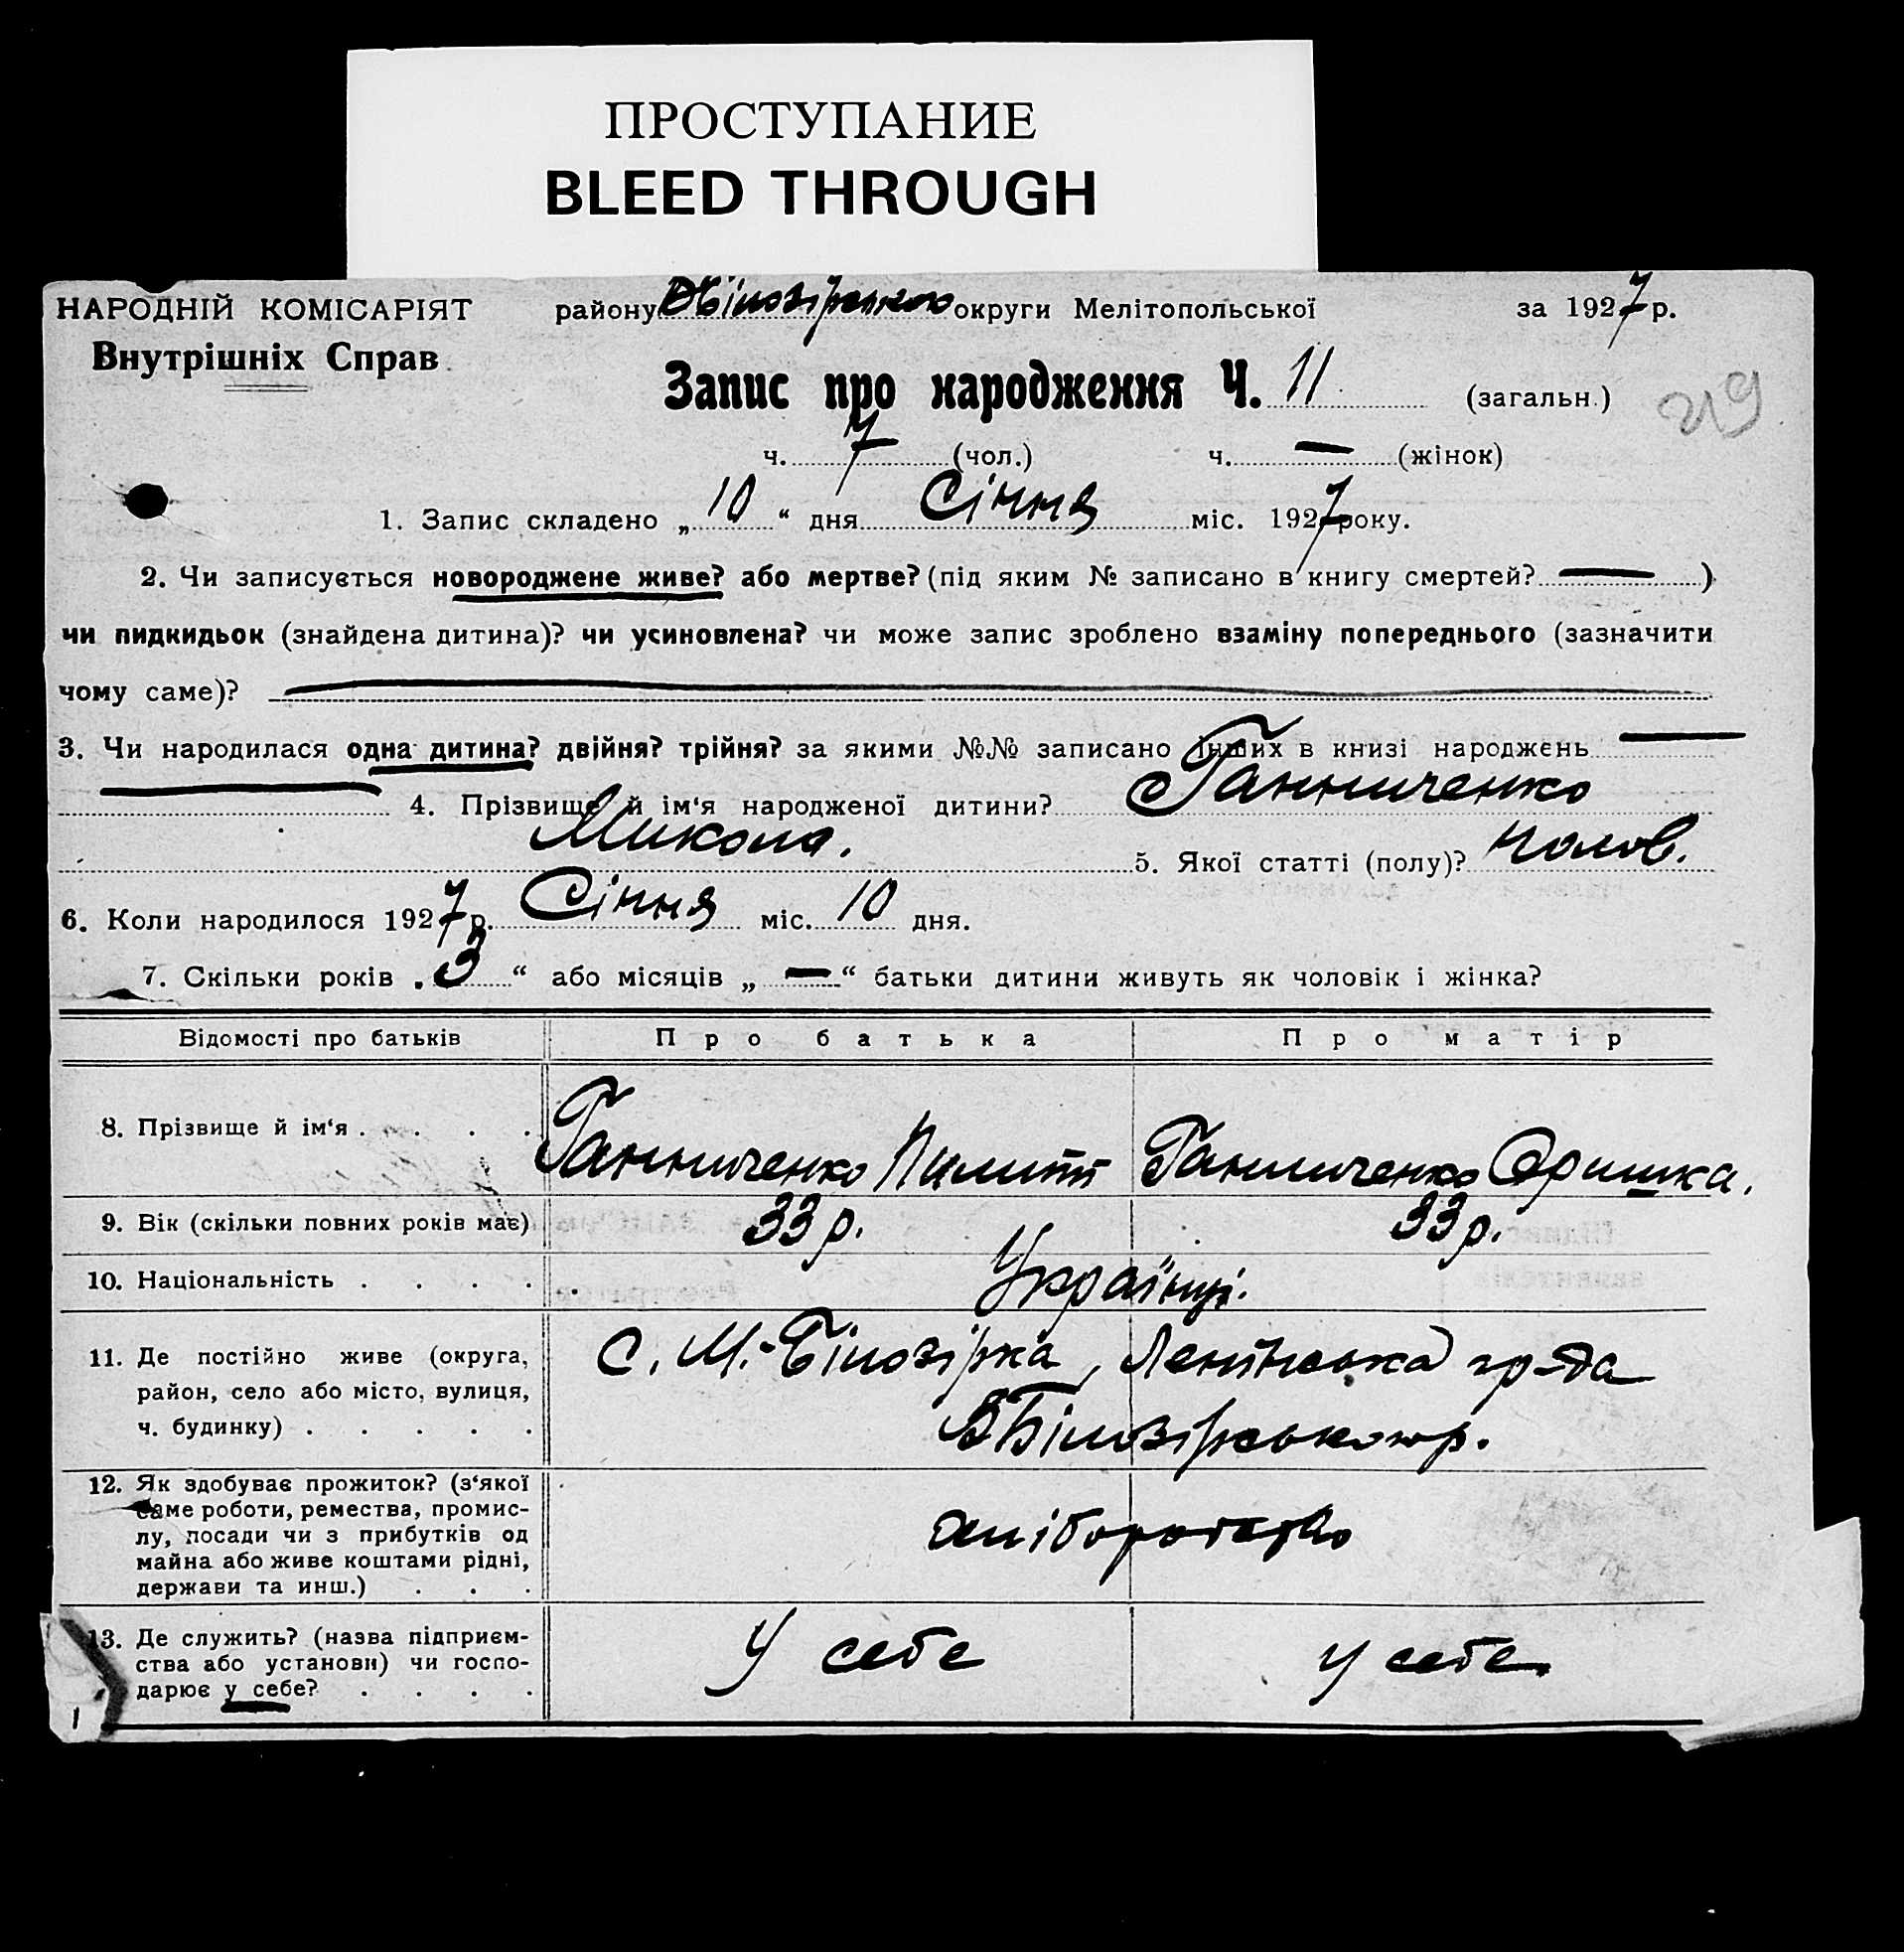 ПРОСТУПАНИЕ
BLEED THROUGH
НАРОДНІЙ КОМІСАРІЯТ району В Білозірського округи Мелітопольської за 1927 р.
Внутрішніх Справ
Запис про народження Ч. 11 (загальн.) 219
ч. 7 (чол.) ч. — (жінок)
1. Запис складено „ 10 “ дня Січня міс. 1927 року.
2. Чи записується новороджене живе? або мертве? (під яким № записано в книгу смертей? — )
чи пидкидьок (знайдена дитина)? чи усиновлена? чи може запис зроблено взаміну попереднього (зазначити
чому саме)? —
3. Чи народилася одна дитина? двійня? трійня? за якими №№ записано інших в книзі народжень —
— 4. Прізвище й ім‘я народженої дитини? Ганниченко
Микола. 5. Якої статті (полу)? чолов.
6. Коли народилося 1927 р. Січня міс. 10 дня.
7. Скільки років „ 3 “ або місяців „ — “ батьки дитини живуть як чоловік і жінка?
Відомості про батьків Про батька Про матір
8. Прізвище й ім‘я . . . . Ганниченко Пилип Ганниченко Оришка.
9. Вік (скільки повних років має) 33 р. 33 р.
10. Національність . . . . Українці.
11. Де постійно живе (округа, с. М.-Білозірка, Ленінська гр-да
район, село або місто, вулиця,
ч. будинку) . . . . . В Білозірського р.
12. Як здобуває прожиток? (з‘якої
саме роботи, ремества, промис-
лу, посади чи з прибутків од хліборобство
майна або живе коштами рідні,
держави та инш.) . . .
13. Де служить? (назва підприєм- У себе у себе
ства або установи) чи госпо-
дарює у себе? . . . .
1